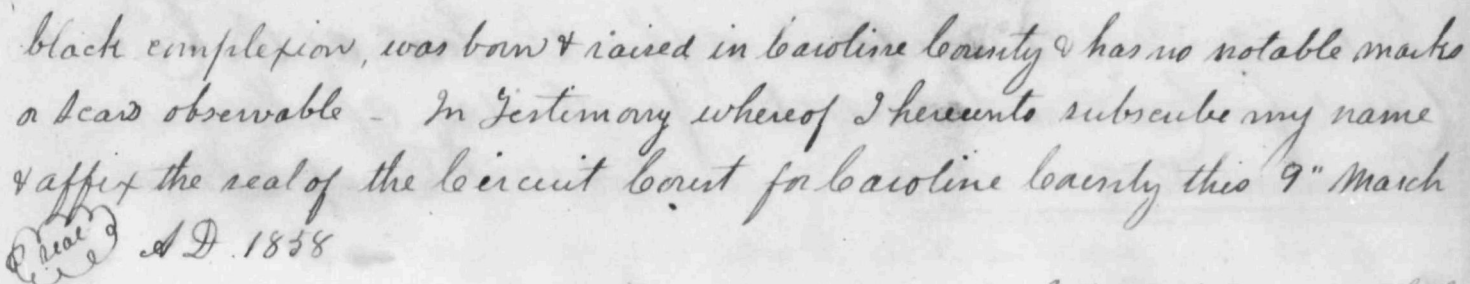 black complexion, was born & raised in Caroline County & has no notable marks
or scars observable - In Testimony whereof I hereunto subscribe my name
& affix the seal of the Circuit Court for Caroline County this 9" March
seal A D. 1858